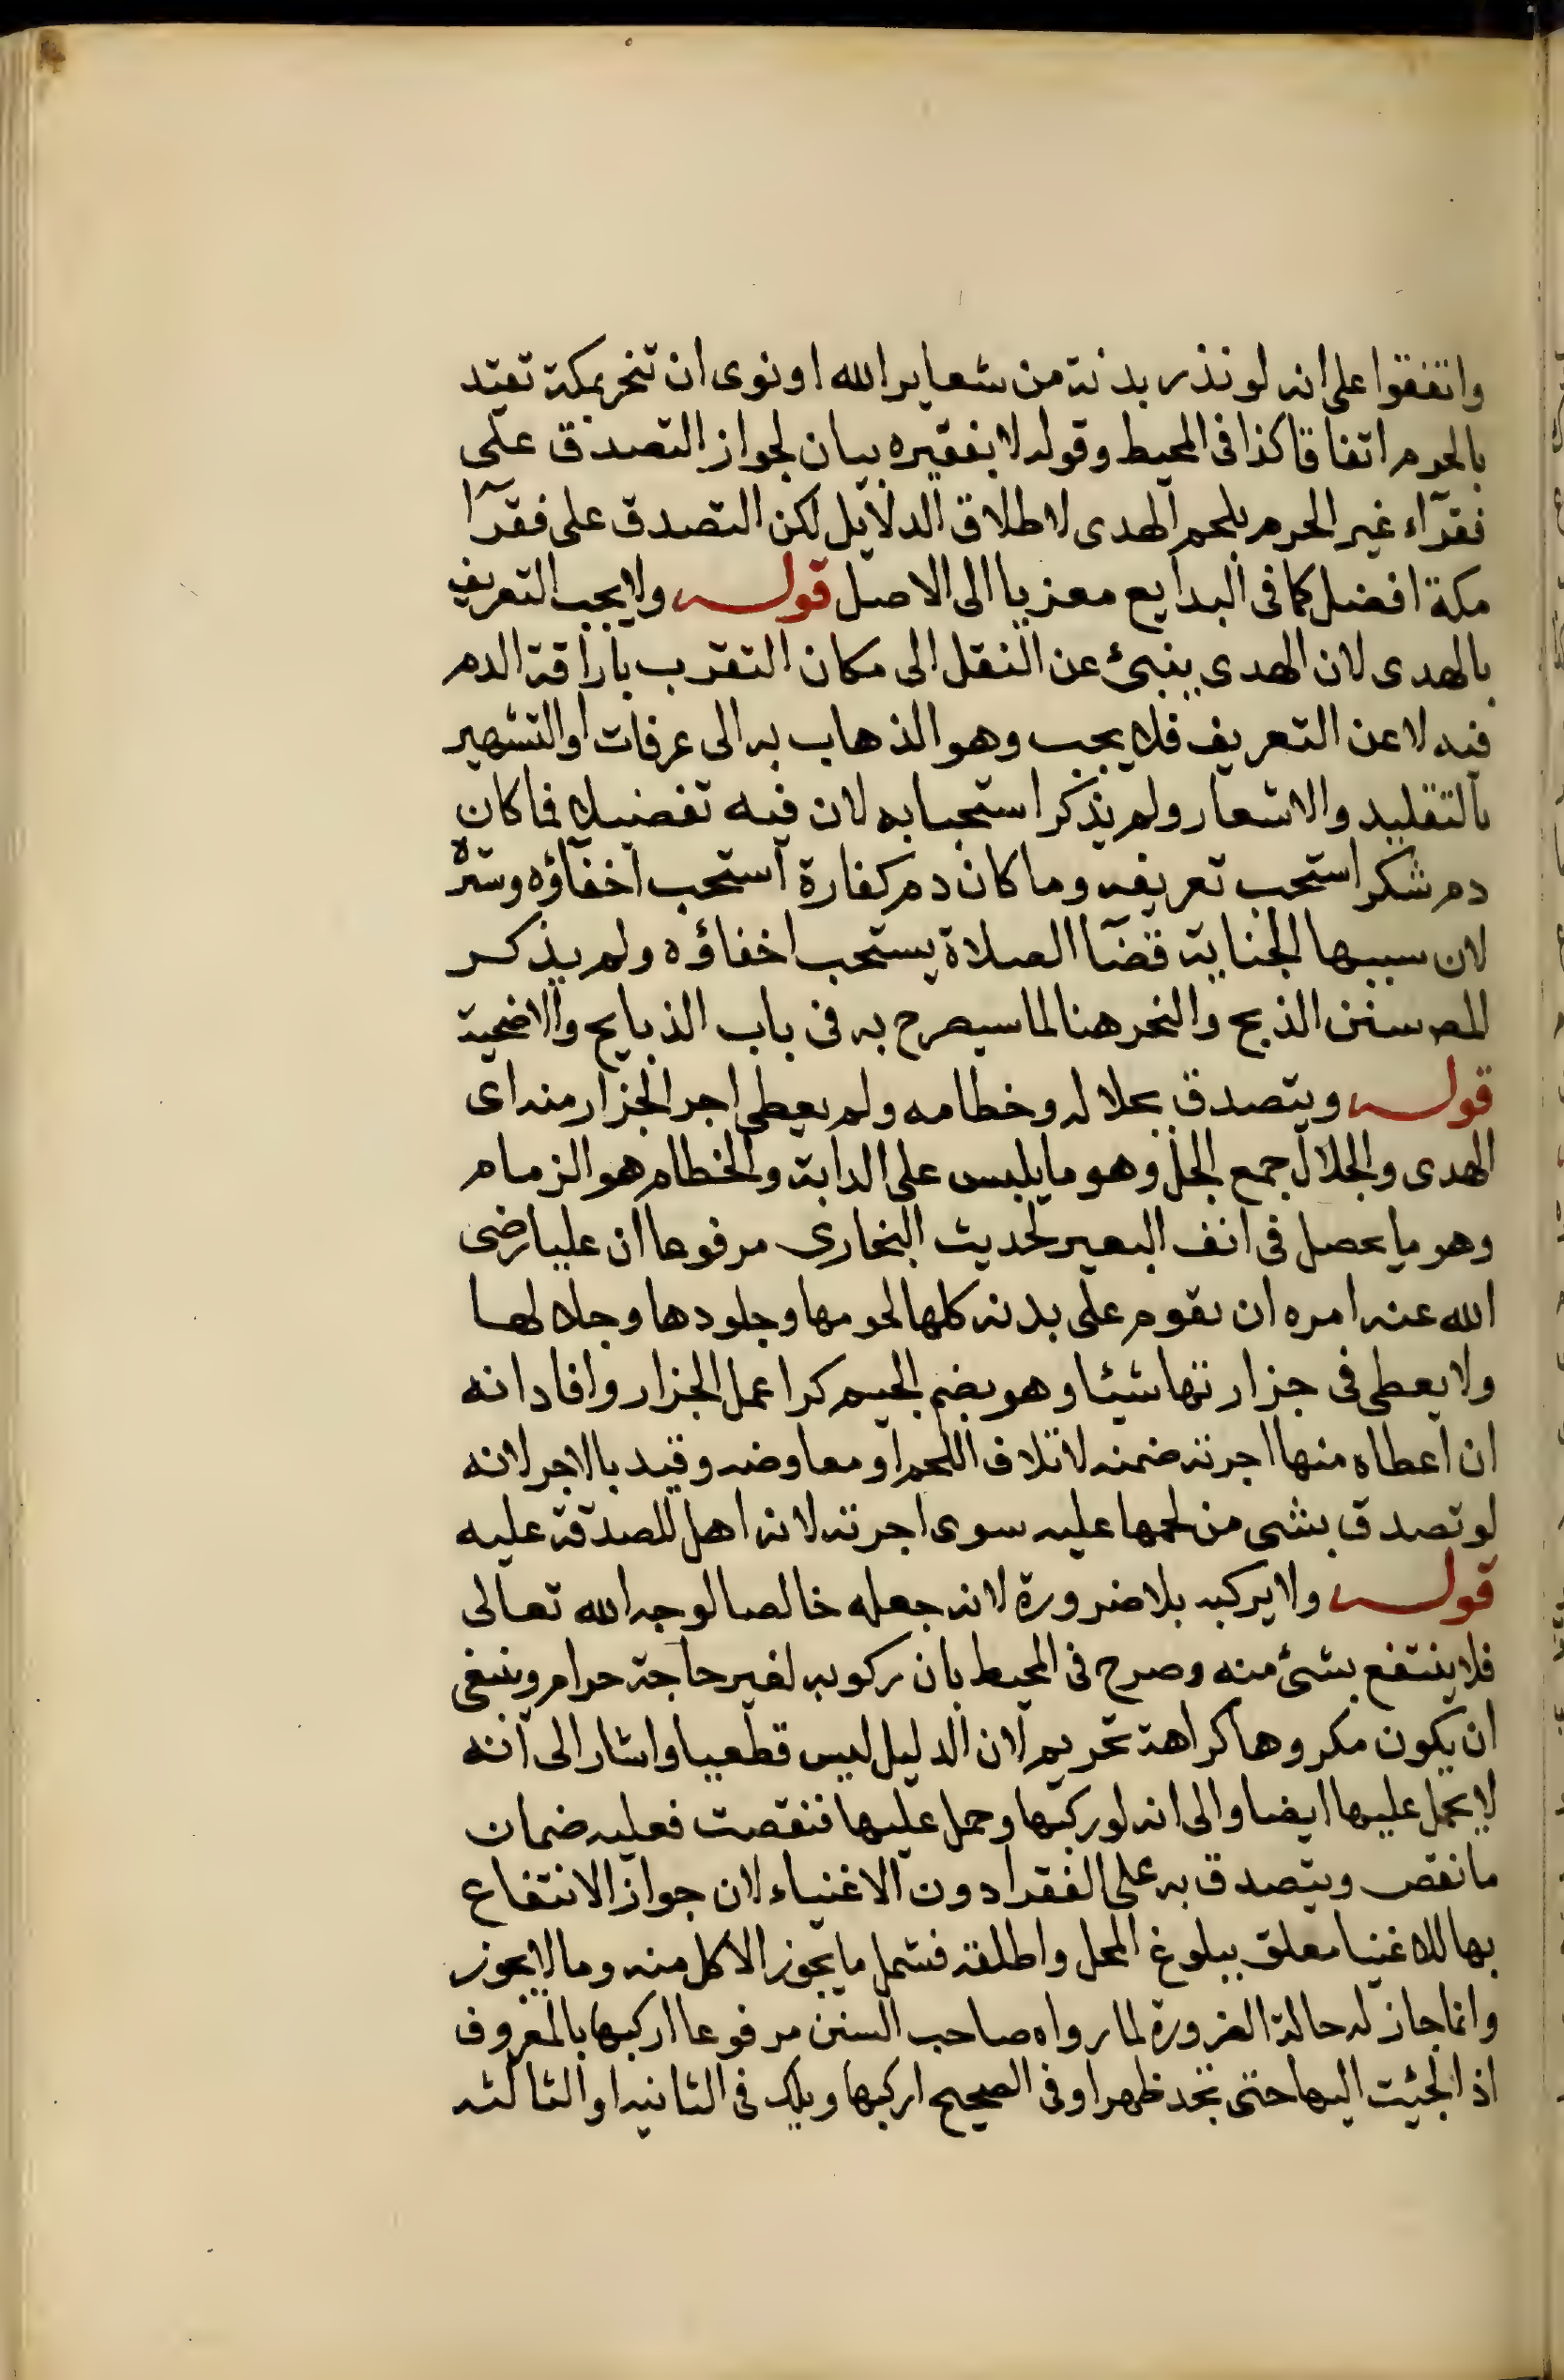 واتفقوا على انه لو نذر بدنة من شعاير الله او نوى ان تنحر بمكة تقيد
بالحرم اتفاقا كذا فى المحيط وقوله لا بفقيره بيان لجواز التصدق على
فقرآء غير الحرم بلحم الهدى لاطلاق الدلايل لكن التصدق على فقرآ
مكة افضل كما فى البدايع معزيا الى الاصل قوله ولا يجب التعريف
بالهدى لان الهدى ينبئ عن النقل الى مكان التقرب باراقة الدم
فيه لا عن التعريف فلا يجب وهو الذهاب به الى عرفات او التشهير
بالتقليد والاشعار ولم يذكر استحبابه لان فيه تفصيلا فما كان
دم شكر استحب تعريفه وما كان دم كفارة استحب اخفاؤه وستره
لان سببها الجناية قضآ الصلاة يستحب اخفاؤه ولم يذكر
المص سنن الذبح والنحر هنا لما سيصرح به فى باب الذبايح والاضحية
قوله ويتصدق بجلاله وخطامه ولم يعطى اجر الجزار منه اى
الهدى والجلال جمع الجل وهو ما يلبس على الدابة والخطام هو الزمام
وهو ما يحصل فى انف البعير لحديث البخارى مرفوعا ان عليا رضى
الله عنه امره ان يقوم على بدنه كلها لحومها وجلودها وجلالها
ولا يعطى فى جزارتها شيئا وهو بضم الجيم كرا عمل الجزار وافاد انه
ان اعطاه منها اجرته ضمنه لاتلاف اللحم او معاوضه وقيد بالاجر لانه
لو تصدق بشى من لحمها عليه سوى اجرته لانه اهل للصدقة عليه
قوله ولا يركبه بلا ضرورة لانه جعله خالصا لوجه الله تعالى
فلا ينتفع بشئ منه وصرح فى المحيط بان ركوبه لغير حاجة حرام وينبغى
ان يكون مكروها كراهة تحريم لان الدليل ليس قطعيا واشار الى انه
لا يحمل عليها ايضا والى انه لو ركبها وحمل عليها فنقصت فعليه ضمان
ما نقص ويتصدق به على الفقرا دون الاغنياء لان جواز الانتفاع
بها للاغنيا معلق ببلوغ المحل واطلقه فشمل ما يجوز الاكل منه وما لا يجوز
وانما جاز له حالة الضرورة لما رواه صاحب السنن مرفوعا اركبها بالمعروف
اذ الجئت اليها حتى تجد ظهرا وفى الصحيح اركبها ويلك فى الثانيه او الثالثه